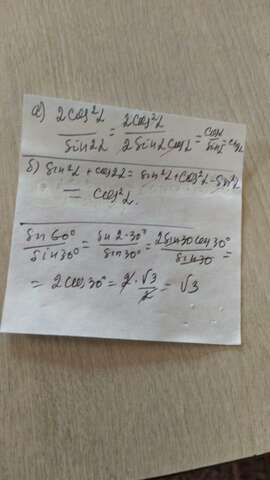 а) 2cos²α / sin2α = 2cos²α / 2sinα cosα = cosα / sinα = ctgα
б) sin²α + cos2α = sin²α + cos²α - sin²α
= cos²α.
sin60° / sin30° = sin2·30° / sin30° = 2sin30 cos30° / sin30 =
= 2cos30° = 2·√3/2 = √3